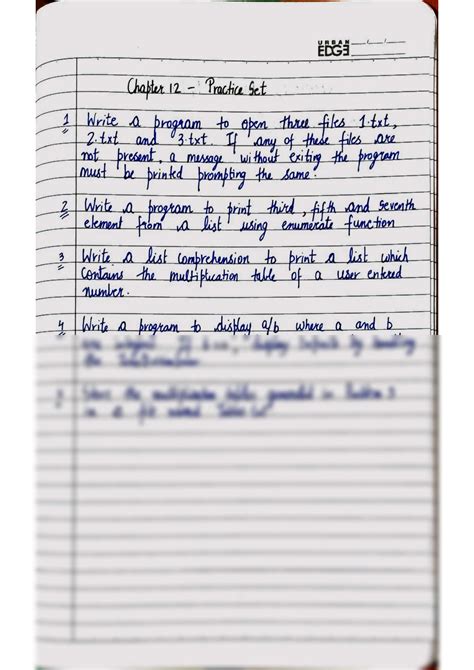 URBAN
EDGE
Chapter 12 - Practice Set
1 Write a program to open three files 1.txt,
2.txt and 3.txt. If any of these files are
not present, a message without exiting the program
must be printed prompting the same.
2 Write a program to print third, fifth and seventh
element from a list using enumerate function
3 Write a list comprehension to print a list which
contains the multiplication table of a user entered
number.
4 Write a program to display a/b where a and b